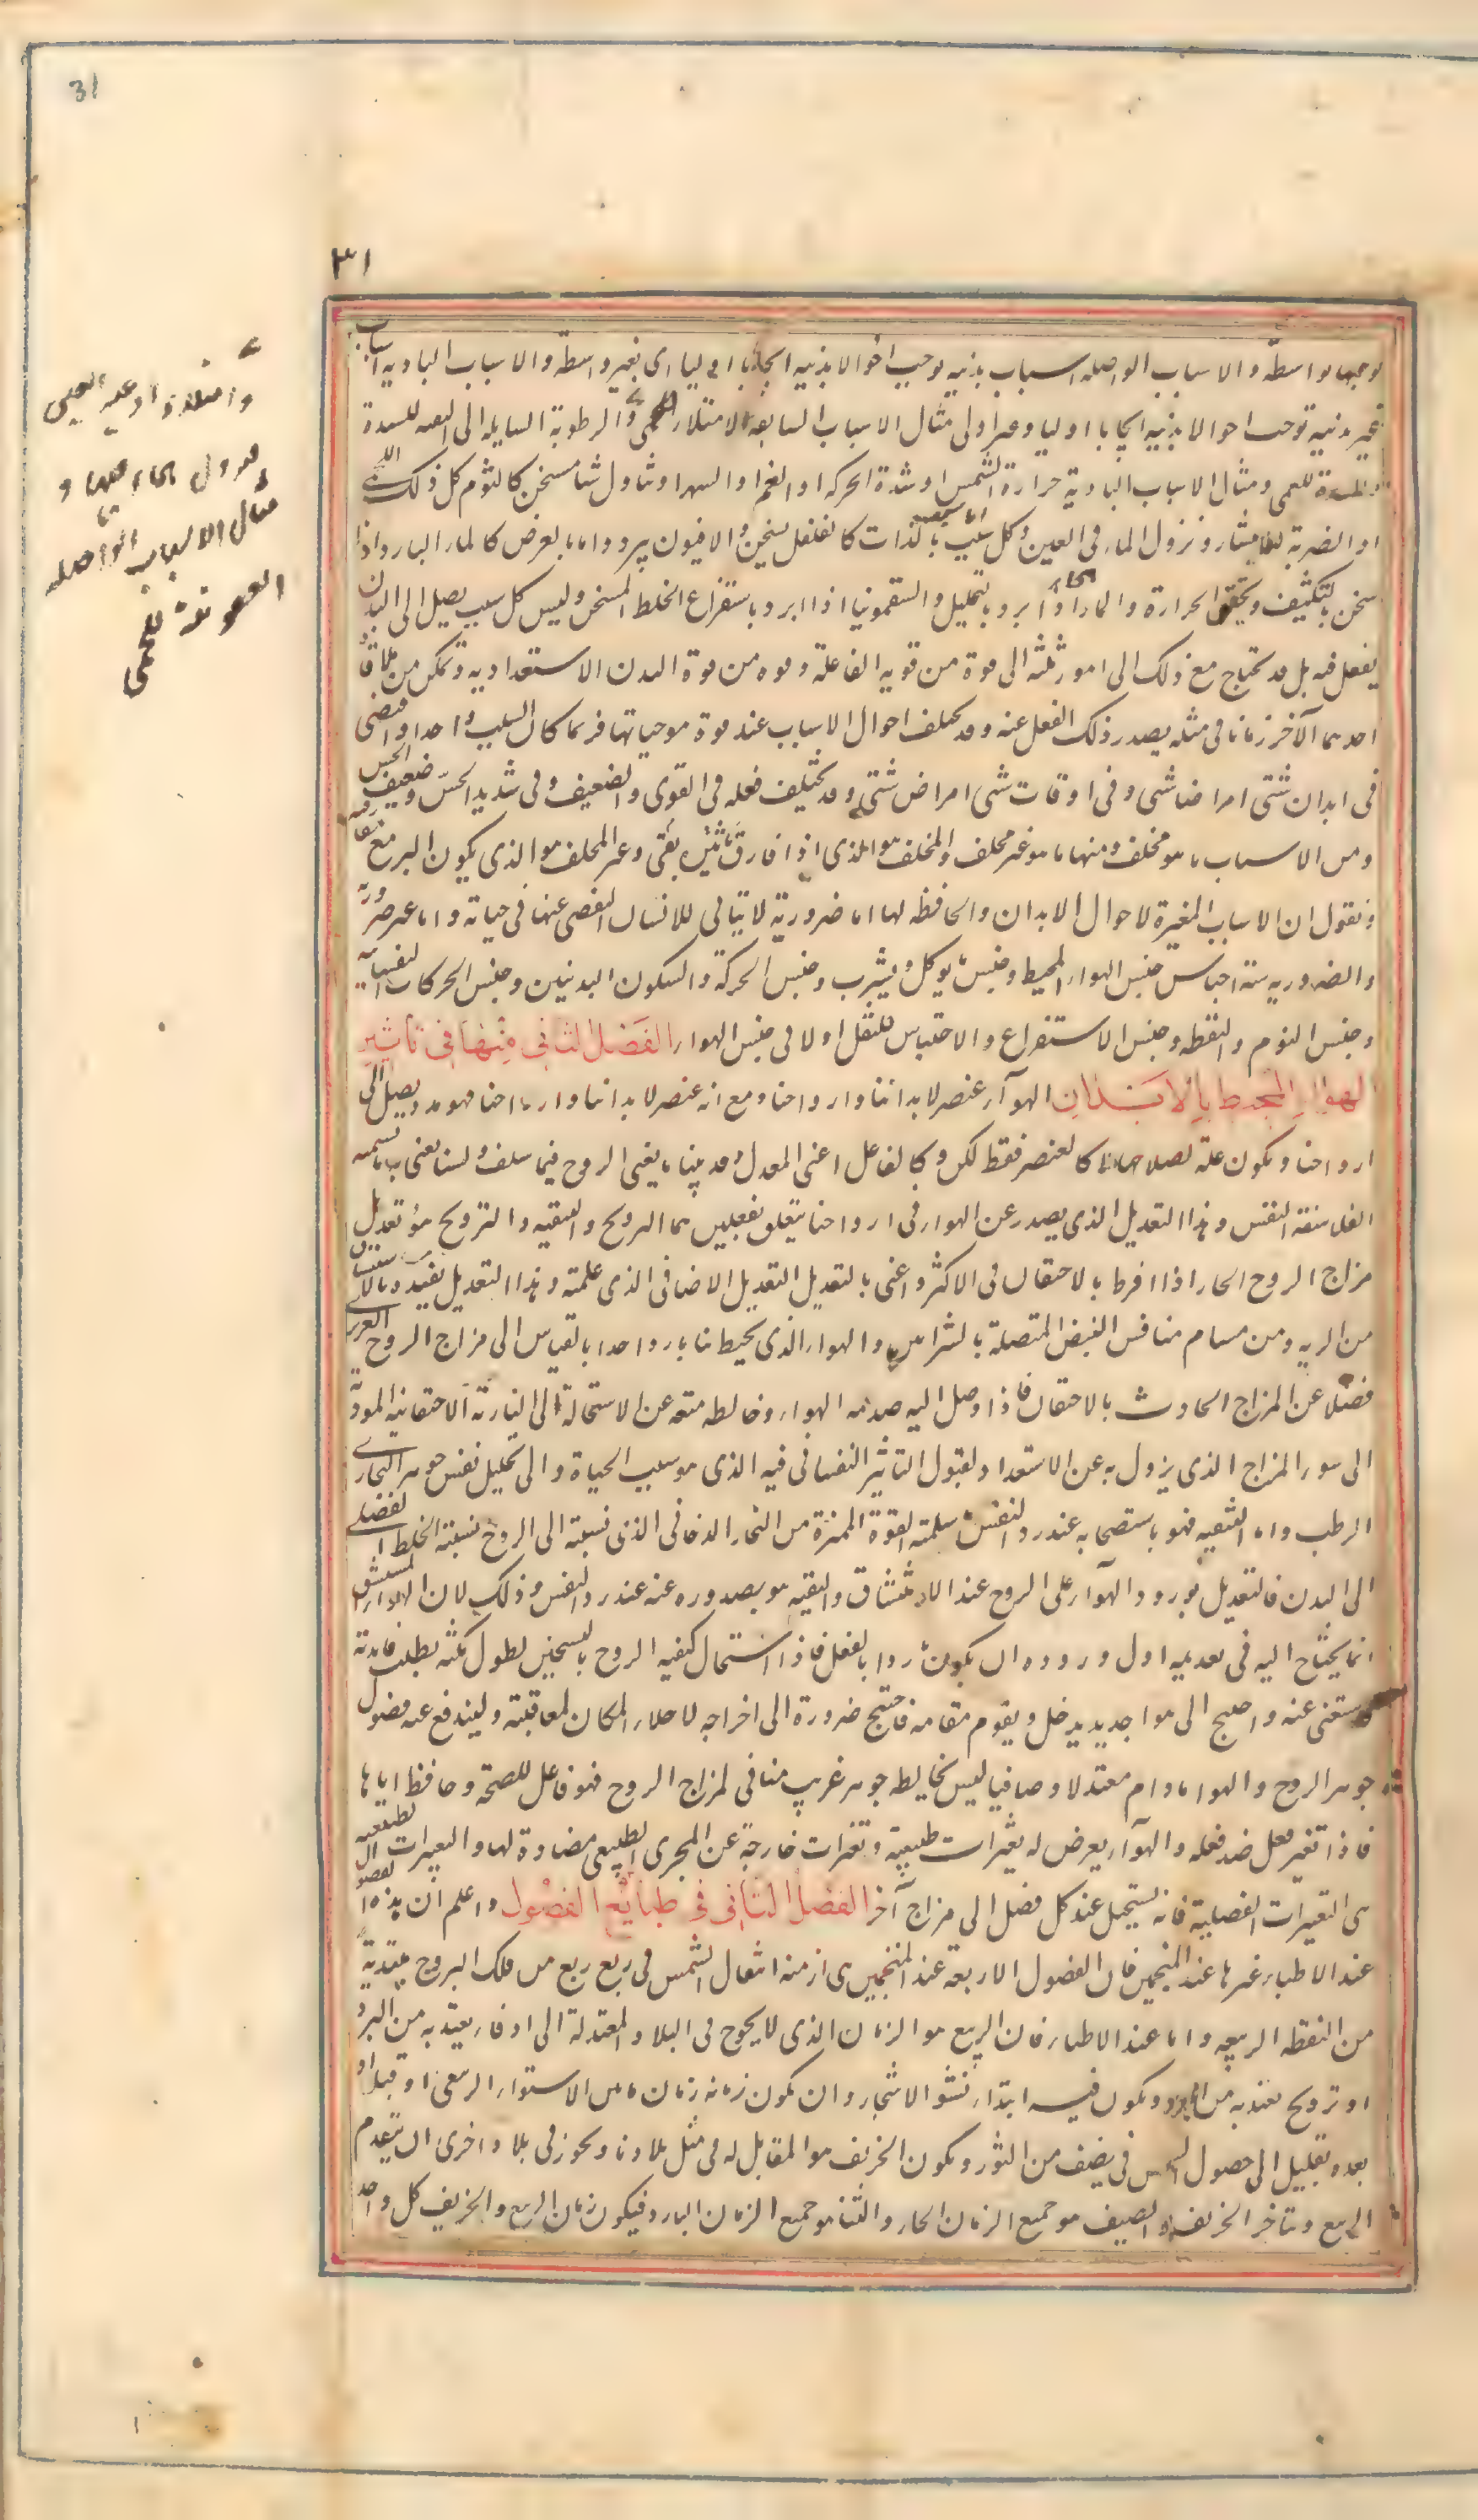 31
٣١
توجبها بواسطة والاسباب الواصله اسباب بدنيه توجب احوالا بدنيه ايجابا اوليا اى بغير واسطة والاسباب الباديه اسباب
غير بدنية توجب احوالا بدنيه ايجابا اوليا وغير اولى مثال الاسباب السابقه الامتلاء للحمى والرطوبة السايله الى العصبه للسدة
والسدة للعمى ومثال الاسباب البادية حرارة الشمس او شدة الحركه او الغم او السهر او تناول شئ مسخن كالثوم كل ذلك للحمى
او الضربة للانتشار ونزول الماء فى العين وكل سبب اما سبب بالذات كالفلفل يسخن والافيون يبرد واما بالعرض كالماء البارد اذا
سخن بالتكثيف وتحقن الحرارة والماء الحار اذا ابرد بالتحليل والسقمونيا اذا ابرد باستفراغ الخلط المسخن وليس كل سبب يصل الى البدن
يفعل فيه بل قد يحتاج مع ذلك الى امور ثلثه الى قوة من قويه الفاعلة وقوه من قوة البدن الاستعداديه وتمكن من ملاقاة
احدهما الآخر زمانا فى مثله يصدر ذلك الفعل عنه وقد يختلف احوال الاسباب عند قوة موجباتها فربما كان السبب واحدا واقتضى
فى ابدان شتى امراضا شتى وفى اوقات شتى امراض شتى وقد يختلف فعله فى القوى والضعيف وفى شديد الحس وضعيف الحس
ومن الاسباب ما هو مخلف ومنها ما هو غير مخلف والمخلف هو الذى اذا فارق تاثيره بقى وغير المخلف هو الذى يكون البرء مع مفارقته
ونقول ان الاسباب المغيرة لاحوال الابدان والحافظه لها اما ضرورية لا يتاتى للانسان التفصى عنها فى حياته واما غير ضرورية
والضروريه ستة اجناس جنس الهواء المحيط وجنس ما يوكل ويشرب وجنس الحركة والسكون البدنيين وجنس الحركات النفسانية
وجنس النوم واليقظه وجنس الاستفراغ والاحتباس فلنقل اولا فى جنس الهواء الفصل الثانى منها فى تاثير
الهواء المحيط بالابدان الهوآء عنصر لابداننا وارواحنا ومع انه عنصر لابداننا وارواحنا فهو مدد يصل الى
ارواحنا ويكون علة لصلاحها لا كالعنصر فقط لكن وكالفاعل اعنى المعدل وقد بينا ما يعنى الروح فيما سلف ولسنا نعنى به ما تسميه
الفلاسفة النفس وهذا التعديل الذى يصدر عن الهواء فى ارواحنا يتعلق بفعلين هما الترويح والتنقيه والترويح هو تعديل
مزاج الروح الحار اذا افرط بالاحتقان فى الاكثر واعنى بالتعديل التعديل الاضافى الذى علمته وهذا التعديل يفيده بالاستنشاق
من الريه ومن مسام منافس النبض المتصلة بالشرايين والهواء الذى يحيط بنا بارد جدا بالقياس الى مزاج الروح الغريزى
فضلا عن المزاج الحادث بالاحتقان فاذا وصل اليه صدمه الهواء وخالطه منعه عن الاستحالة الى النارية الاحتقانيه المودية
الى سوء المزاج الذى يزول به عن الاستعداد لقبول التاثير النفسانى فيه الذى هو سبب الحياة والى تحليل نفس جوهره البخارى
الرطب واما التنقيه فهو باستصحابه عند رد النفس ما سلمته القوة المميزة من البخار الدخانى الذى نسبته الى الروح نسبة الخلط الفضلى
الى البدن فالتعديل بورود الهوآء على الروح عند الاستنشاق والتنقيه هو بصدوره عنه عند رد النفس وذلك لان الهواء المستنشق
انما يحتاج اليه فى تعديله اول وروده ان يكون باردا بالفعل فاذا استحال كيفية الروح بالتسخين لطول مكثه بطلت فايدته
فاستغنى عنه واحتيج الى هوا جديد يدخل ويقوم مقامه فاحتيج ضرورة الى اخراجه لاخلاء المكان لمعاقبته وليندفع عنه فضول
جوهر الروح والهوا مادام معتدلا وصافيا ليس يخالطه جوهر غريب منافى لمزاج الروح فهو فاعل للصحة وحافظ اياها
فاذا تغير فعل ضد فعله والهوآء يعرض له تغيرات طبيعية وتغيرات خارجة عن المجرى الطبيعى مضادة لها والتغيرات الطبيعيه
هى التغيرات الفصلية فانه يستحيل عند كل فصل الى مزاج آخر الفصل الثانى فى طبايع الفصول واعلم ان هذه الفصول
عند الاطباء غيرها عند المنجمين فان الفصول الاربعة عند المنجمين هى ازمنة انتقال الشمس فى ربع ربع من فلك البروج مبتدية
من النقطه الربيعيه واما عند الاطباء فان الربيع هو الزمان الذى لا يحوج فى البلاد المعتدلة الى ادفاء يعتد به من البرد
او ترويح يعتد به من الحر ويكون فيه ابتداء نشو الاشجار وان يكون زمانه زمان ما بين الاستواء الربيعى او قبله او
بعده بقليل الى حصول الشمس فى نصف من الثور ويكون الخريف هو المقابل له فى مثل بلادنا ويجوز فى بلاد اخرى ان يتقدم
الربيع ويتاخر الخريف والصيف هو جميع الزمان الحار والشتا هو جميع الزمان البارد فيكون زمان الربيع والخريف كل واحد
وامتلاء اوعيه العين
نزول الماء فيها و
مثال الاسباب الواصله
العفونة للحمى